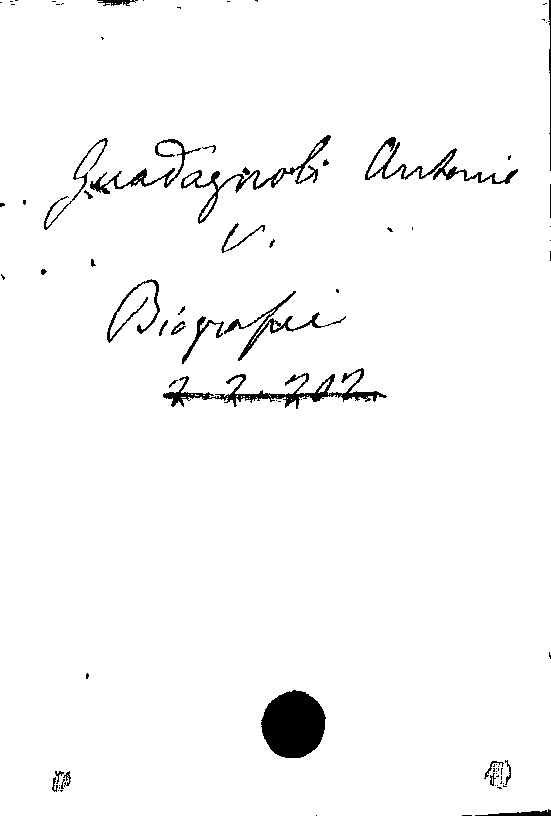 Guadagnoli Antonio
V.
Biografie
2. 2. 202.